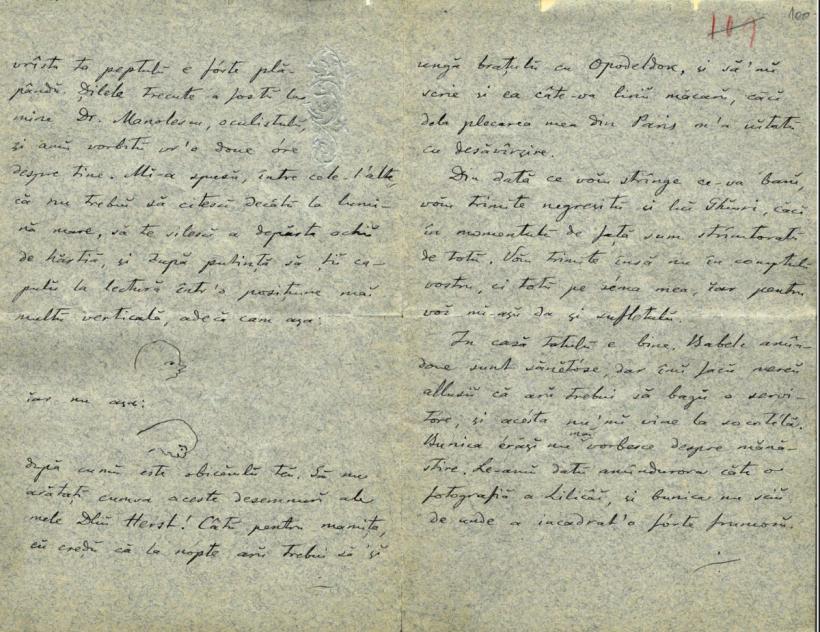 vrîsta ta peptulŭ e fórte plă-
pândŭ. Ḑilele trecute a fostŭ la
mine Dr. Manolescu, oculistulŭ,
și amŭ vorbitŭ vr'o doue óre
despre tine. Mi-a spusŭ, între cele-l'alte,
că nu trebui să citescĭ decâtŭ la lumi-
nă mare, să te silescĭ a depărta ochiĭ
de hârtiă, și după putință să țiĭ ca-
pulŭ la lectură într'o positiune maĭ
multŭ verticală, adecă cam așa:
iar nu așa:
după cumŭ este obiceiulŭ tĕŭ. Să nu
arătați cumva aceste desemnurĭ ale
mele Dluĭ Herst! Câtŭ pentru mamița,
eŭ credŭ că la nópte arŭ trebui să 'șĭ
101 100
ungă brațulŭ cu Opodeldok, și să'mĭ
scrie și ea câte-va liniĭ măcarŭ, căcĭ
dela plecarea mea din Paris m'a uitatŭ
cu desăvîrșire.
Din dată ce voiŭ strînge ce-va banĭ,
voiŭ trimite negreșitŭ și luĭ Thierri, căcĭ
în momentulŭ de față sum strîmtoratŭ
de totŭ. Voiŭ trimite însă nu în comptulŭ
vostru, ci totŭ pe séma mea, iar pentru
voĭ mi-așĭ da și sufletulŭ.
In casă totulŭ e bine. Babele amîn-
doue sunt sănĕtóse, dar îmĭ facŭ mereŭ
allusiĭ că arŭ trebui să bagŭ o servi-
tóre, și acésta nu'mĭ vine la socotélă.
Bunica érășĭ nu maĭ vorbesce despre mănă-
stire. Le-amŭ datŭ amîndurora câte o
fotografiă a Lilicăĭ, și bunica nu sciŭ
de unde a incadrat'o fórte frumosŭ.